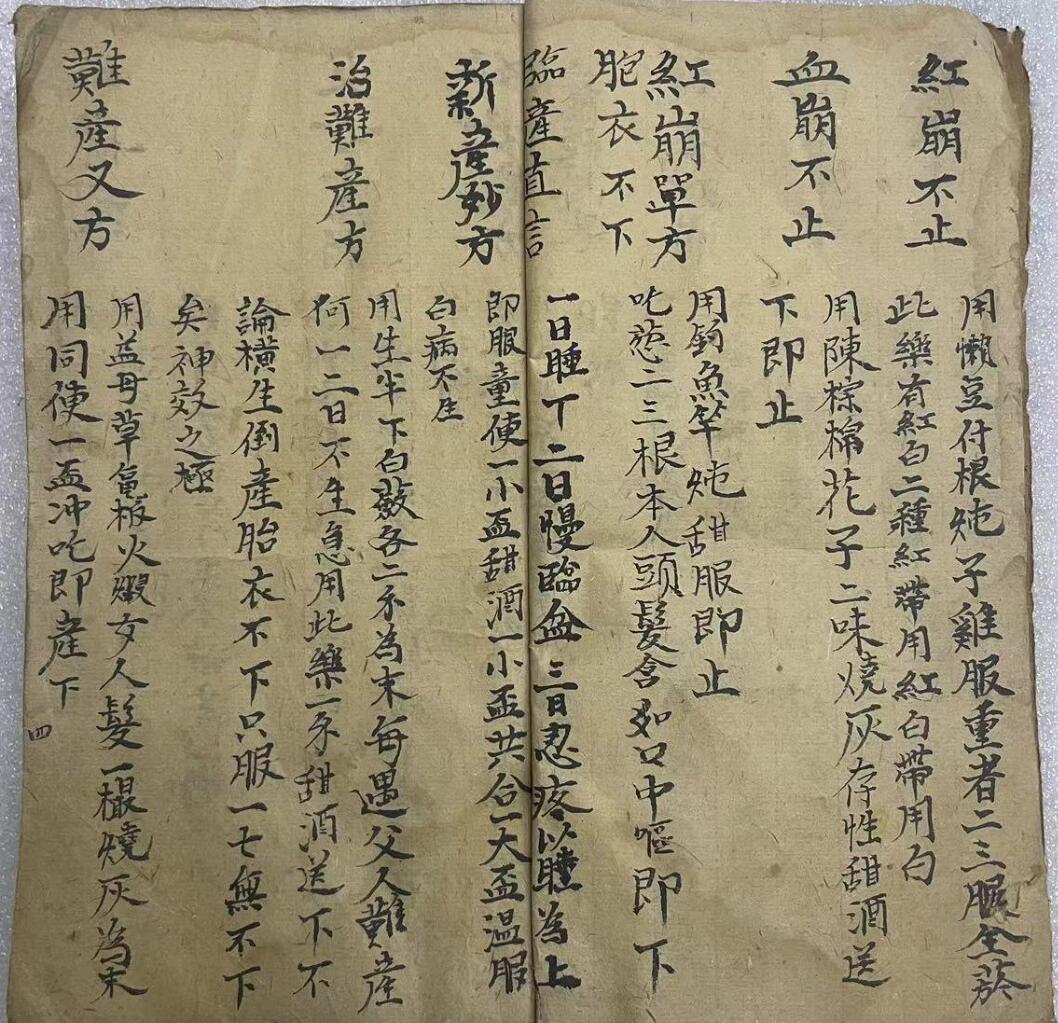 紅崩不止
用懶豆付根炖子雞服重者二三服全葯
此藥有紅白二種紅帶用紅白帶用白
血崩不止
用陳棕棉花子二味燒灰存性甜酒送
下即止
紅崩單方
用釣魚竿炖甜服即止
胞衣不下
吃葱二三根本人頭髮含如口中嘔即下
臨産直言
一曰睡丁二曰慢臨盆三曰忍疼以睡為上
新産妙方
即服童便一小盃甜酒一小盃共合一大盃温服
白病不生
治難産方
用生半下白蘞各二不為末每遇父人難産
何一二日不生急用此藥一不甜酒送下不
論橫生倒産胎衣不下只服一七無不下
矣神效之極
難産又方
用益母草 火煅女人髮一棍燒灰為末
用同便一盃冲吃即産下
四